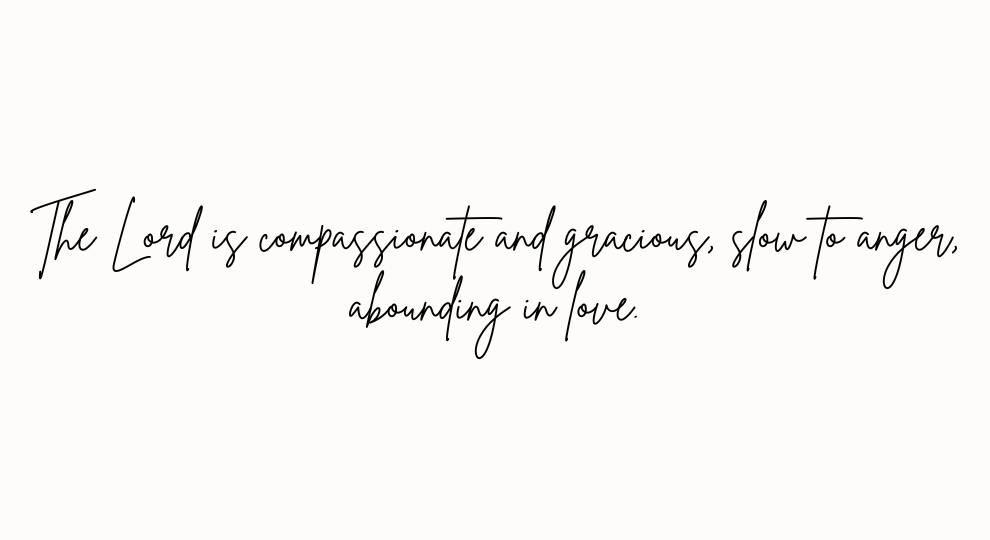 The Lord is compassionate and gracious, slow to anger,
abounding in love.